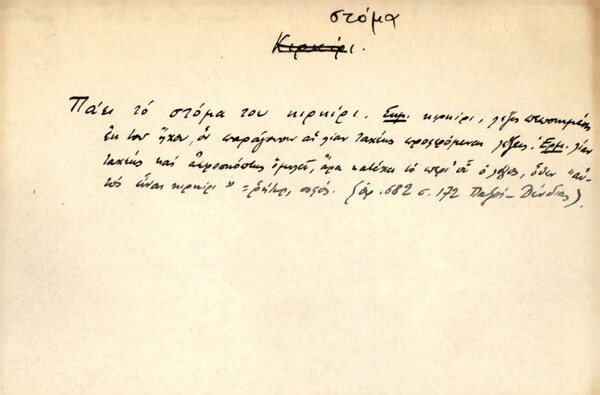 στόμα
Κιρκίρι.
Πάει τό στόμα του κιρκίρι. Σημ. κιρκίρι, λέξις πεποιημένη
ἐκ του ἤχου, ὃν παράγουσιν αἱ λίαν ταχέως προφερόμεναι λέξεις. Ἑρμ. λίαν
ταχέως καί ἀπροσκόπτως ὁμιλεῖ, ἄρα κατέχει τό περί οὗ ὁ λόγος, ὅθεν "αὐ-
τός εἶναι κιρκίρι" = ῥήτωρ, σοφός. (ἀρ. 682 σ. 172 Παξοί -